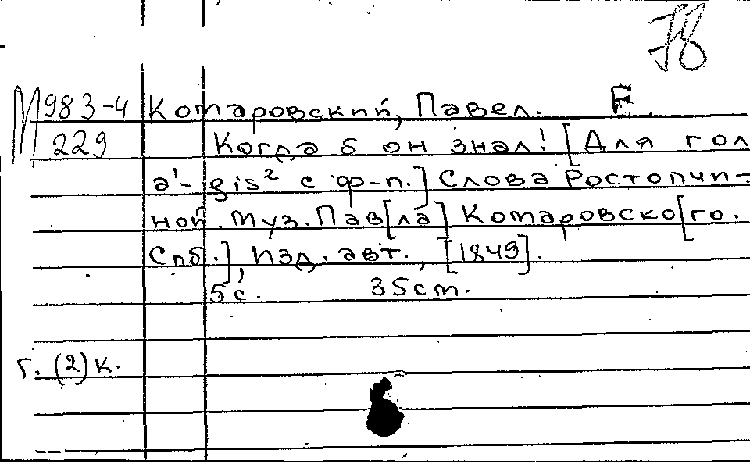 78
М 983-4 Комаровский, Павел. F
229 Когда б он знал! [Для гол
a'- gis² с ф-п.] Слова Ростопчи-
ной. Муз. Пав[ла] Комаровско[го.
Спб.], Изд. авт., [1849].
5с. 35cm.
г. (2) к.